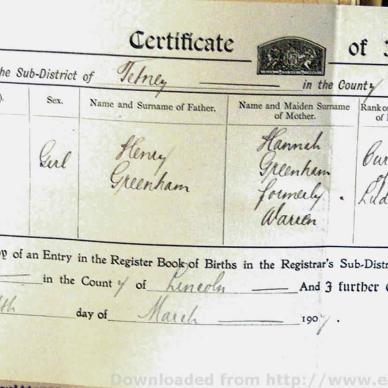 Certificate of
the Sub-District of Tetney in the County
Sex. Name and Surname of Father. Name and Maiden Surname of Mother. Rank or
Girl Henry Greenham Hannah Greenham formerly Warren of
py of an Entry in the Register Book of Births in the Registrar's Sub-Distr
in the County of Lincoln And I further
th day of March 190
Downloaded from http://www.e